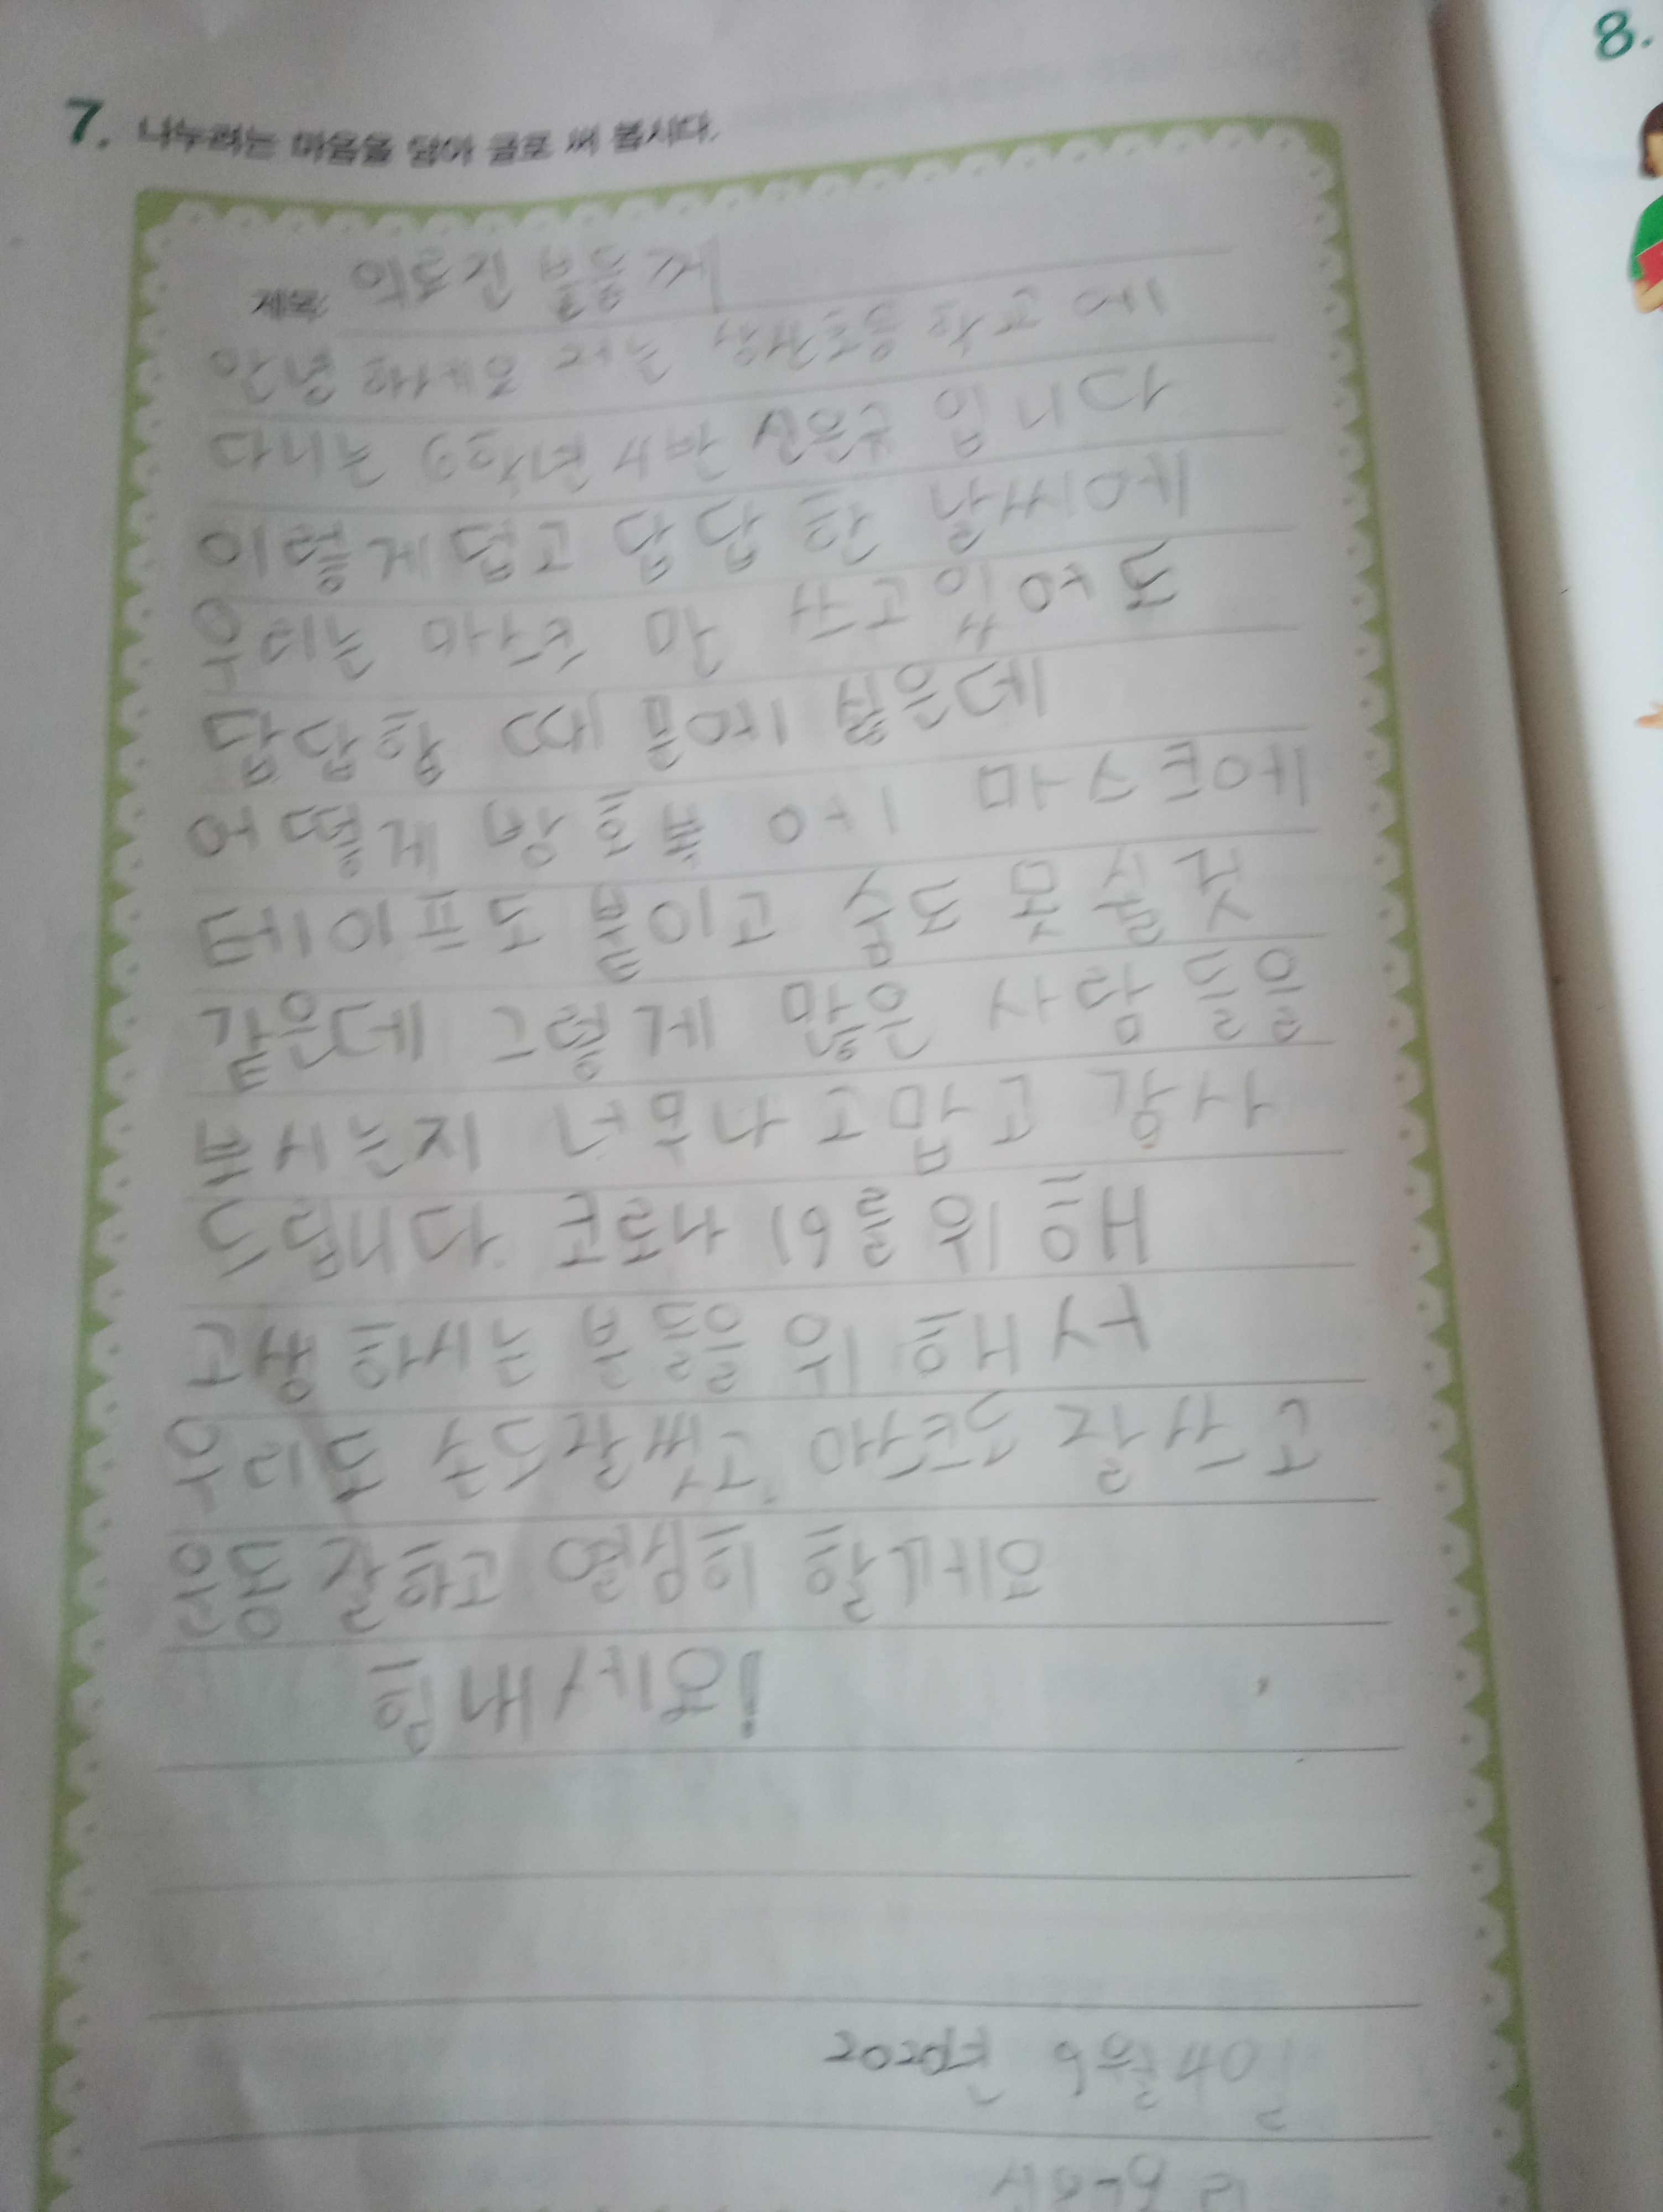 7. 나누려는 마음을 담아 글로 써 봅시다.
8.
제목: 의료진 분들께
안녕하세요 저는 학교에
다니는 학년 4반 입니다
이렇게 덥고 답답한 날씨에
우리는 마스크만 쓰고있어도
답답할 때 많은데
어떻게 방호복에 마스크에
테이프도 붙이고 숨도 못 쉴것
같은데 그렇게 많은 사람들을
보시는지 너무나 고맙고 감사
드립니다. 코로나 19를 위해
고생하시는 분들을 위해서
우리도 손도잘씻고 잘쓰고
운동 잘하고 열심히 할게요
힘내세요!
2020년 9월 4일